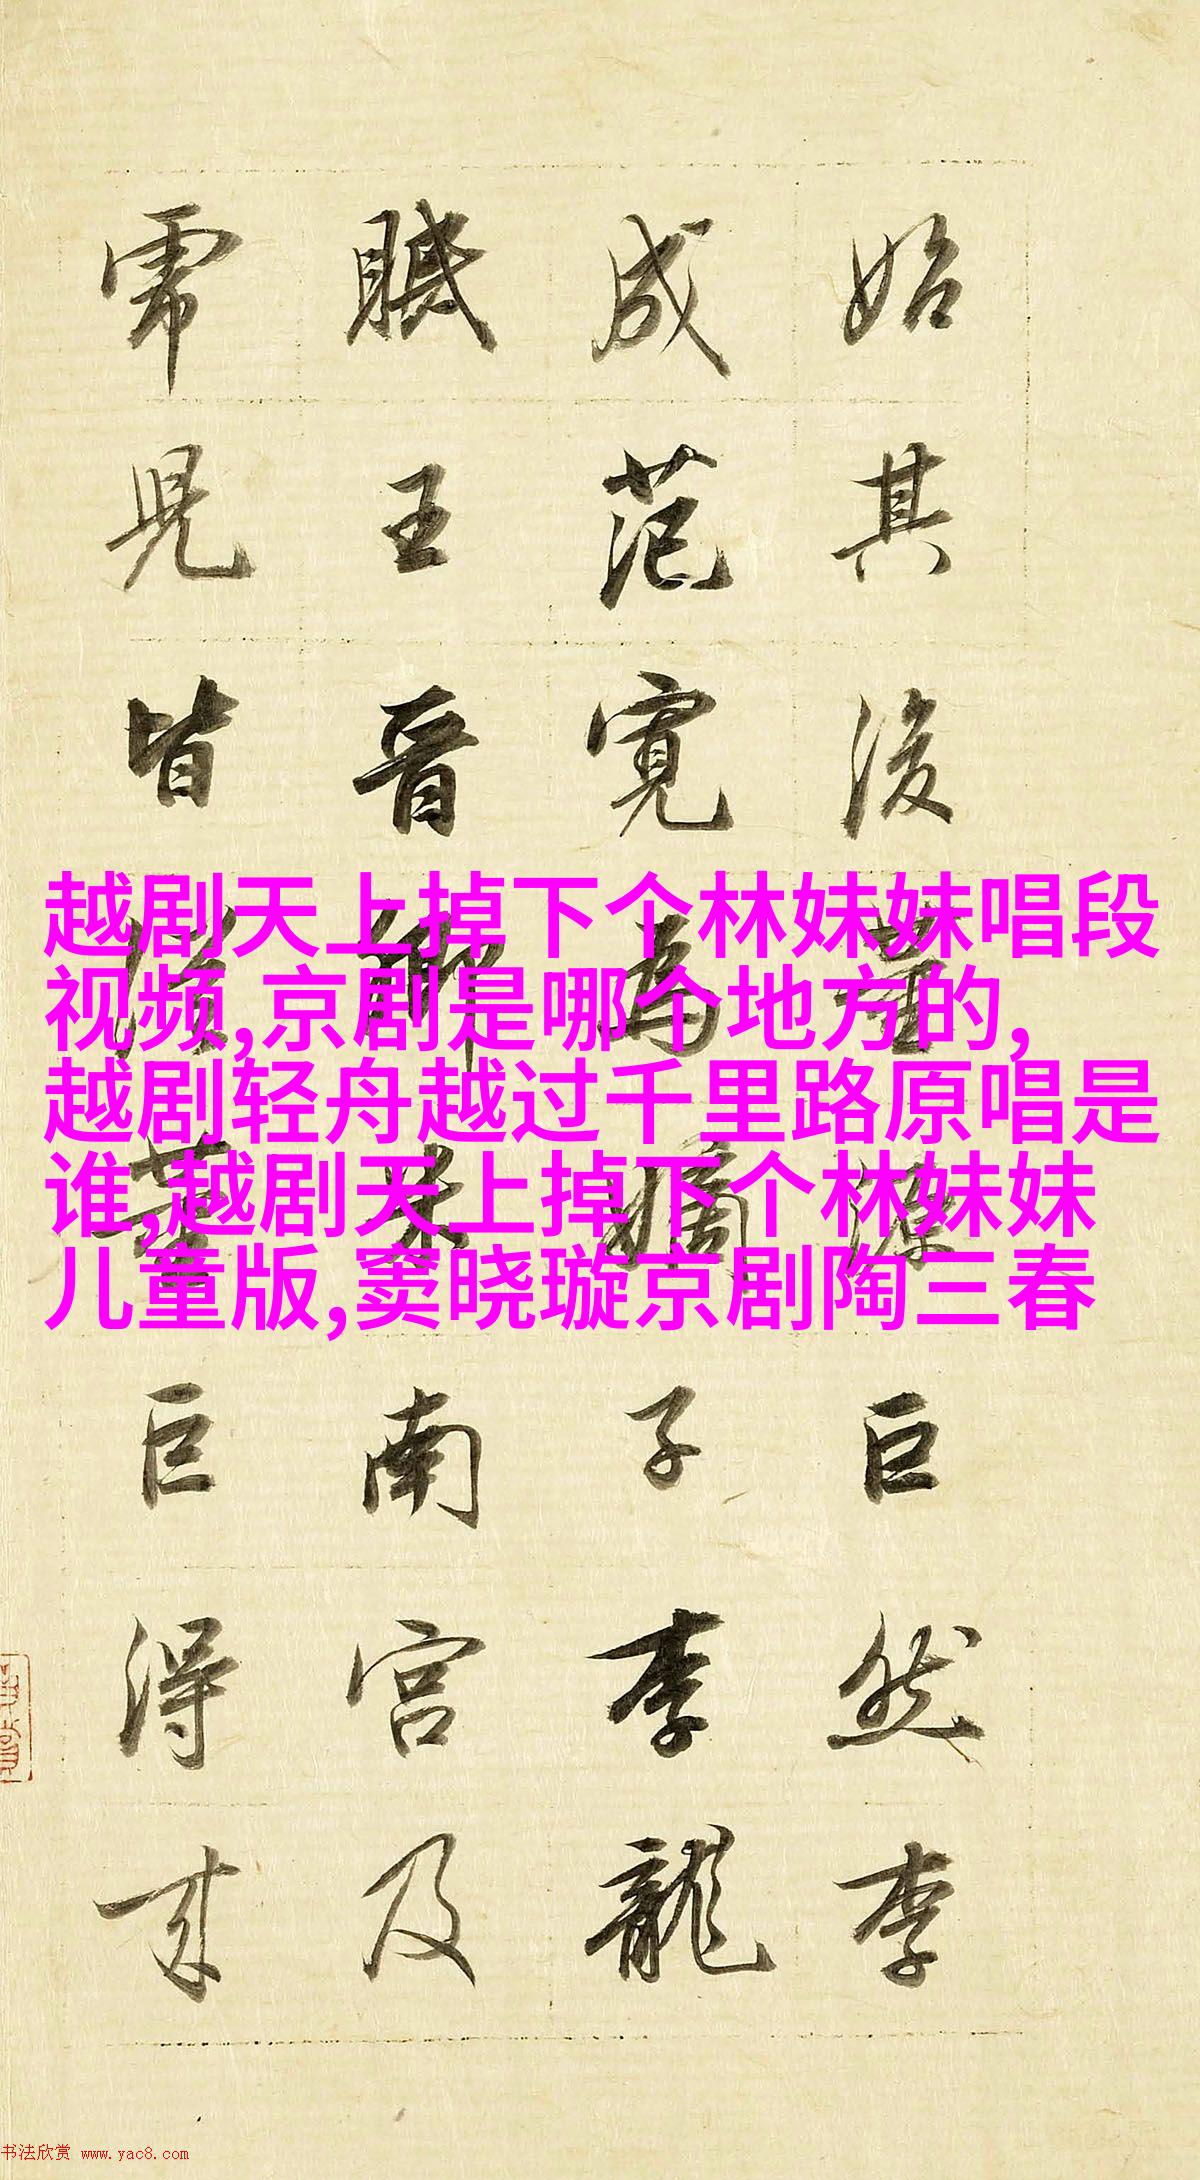 始其後荊浩巨然李
成范寬為嫡子李龍
眠王晉卿米南宮及
虎兒皆從董巨得来
越剧天上掉下个林妹妹唱段
视频,京剧是哪个地方的,
越剧轻舟越过千里路原唱是
谁,越剧天上掉下个林妹妹
儿童版,窦晓璇京剧陶三春
书法欣赏 www.yac8.com